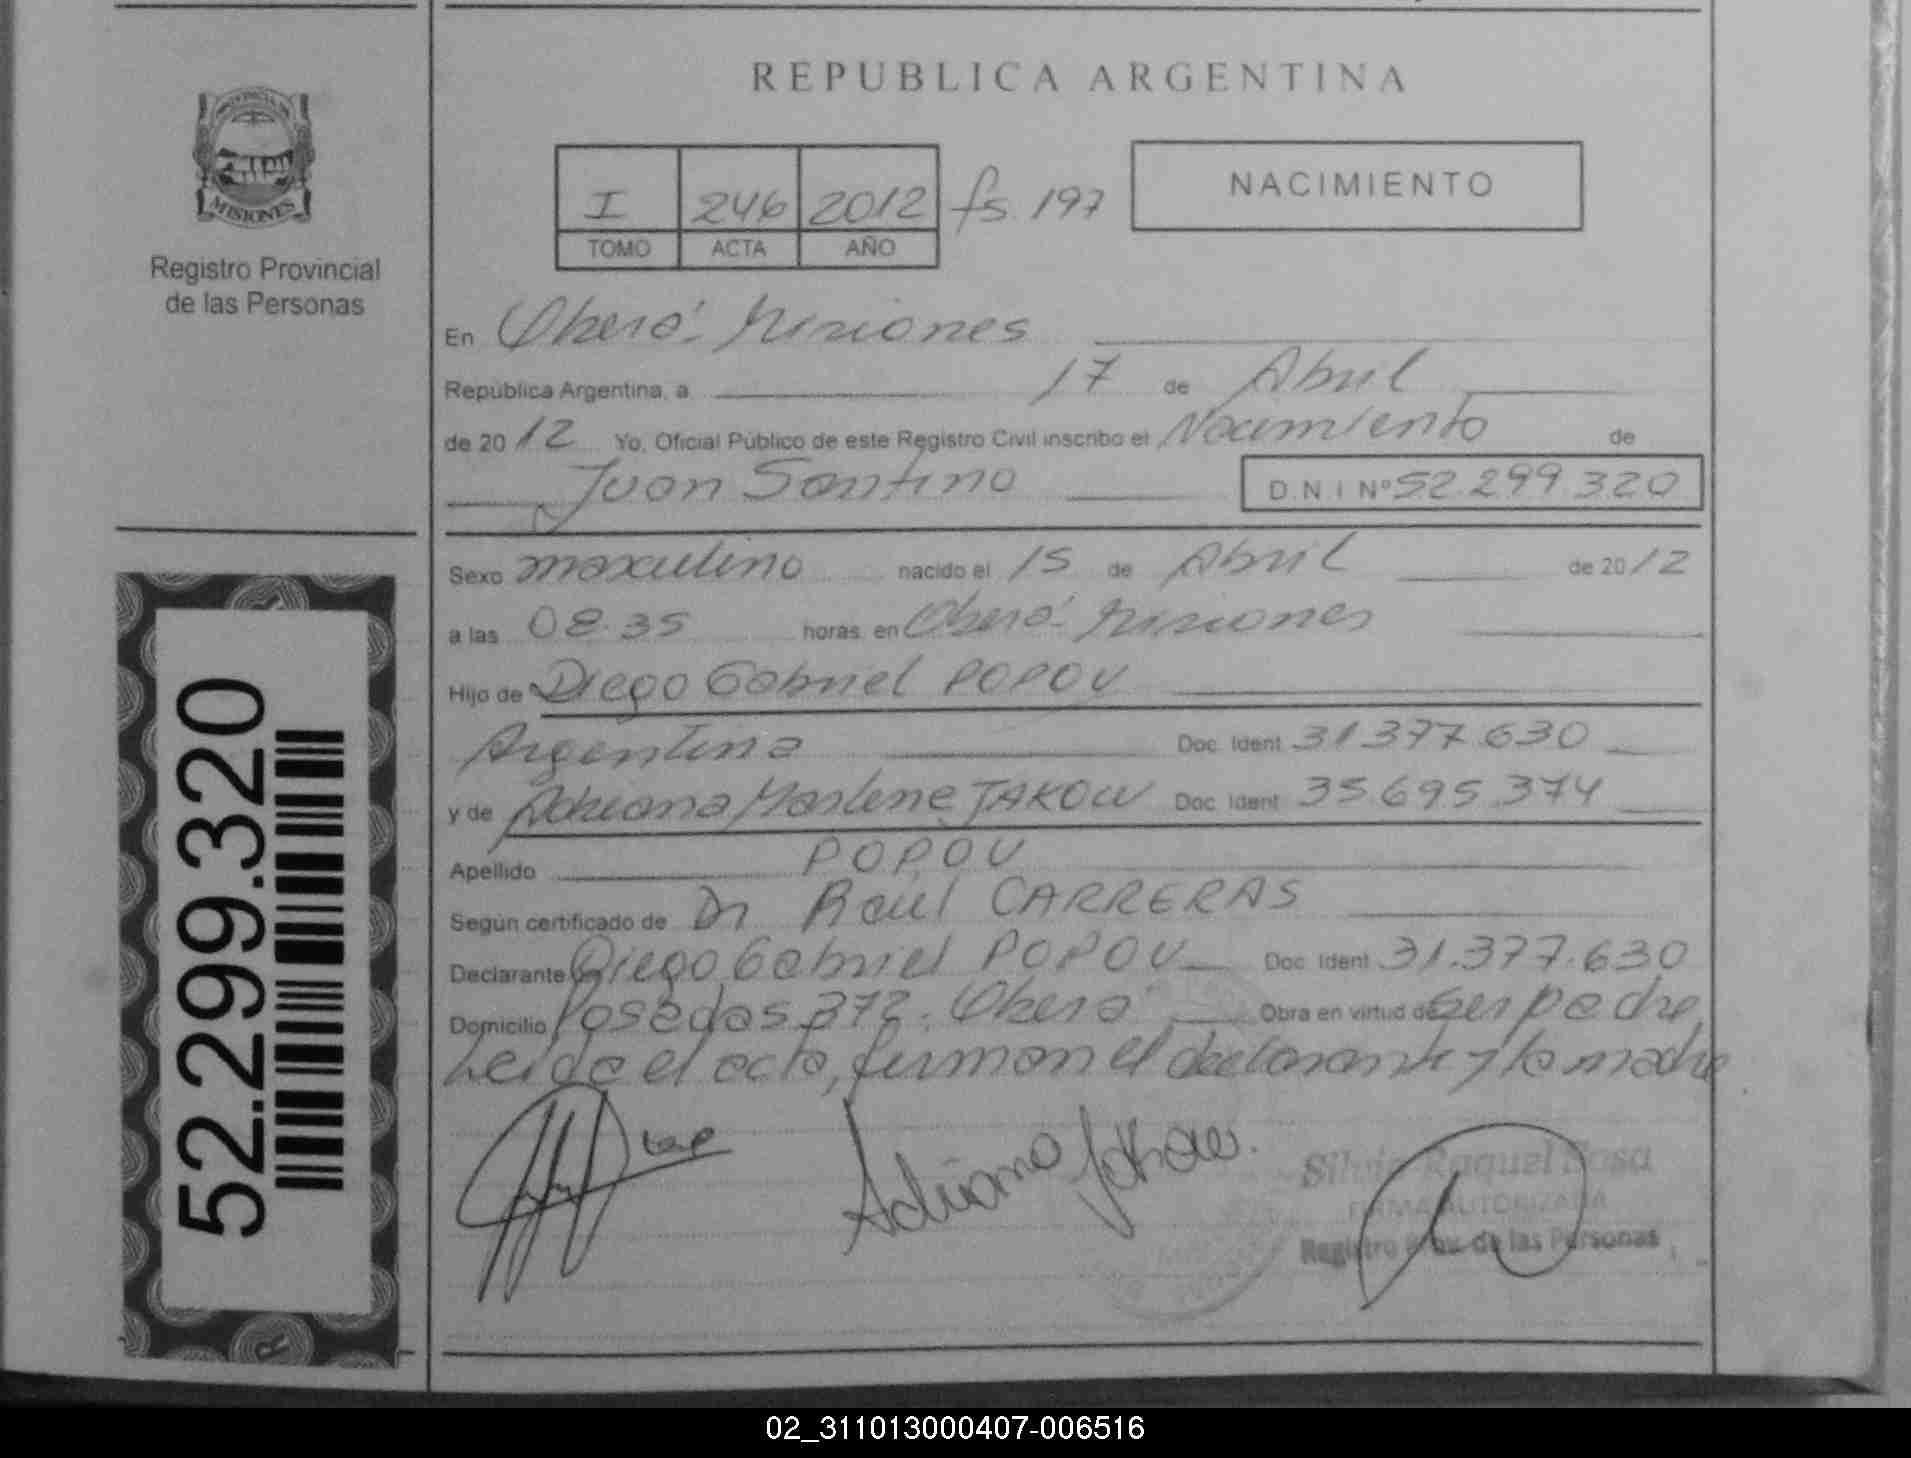 REPUBLICA ARGENTINA
PROVINCIA DE
MISIONES
Registro Provincial
de las Personas
I 246 2012 fs. 197
TOMO ACTA AÑO
NACIMIENTO
En Oberá - Misiones
República Argentina, a 17 de Abril
de 2012 Yo, Oficial Público de este Registro Civil inscribo el Nacimiento de
Juan Santino D.N.I Nº 52.299.320
Sexo masculino nacido el 15 de Abril de 2012
a las 08.35 horas en Oberá - Misiones
Hijo de Diego Gabriel POPOV
Argentina Doc. Ident 31.377.630
y de Adriana Marlene JAKOW Doc. Ident 35.695.374
Apellido POPOV
Según certificado de Dr Raúl CARRERAS
Declarante Diego Gabriel POPOV Doc. Ident 31.377.630
Domicilio Posadas 372 - Oberá Obra en virtud de Ser padre,
Leida el acta, firman el declarante y la madre
Adriana Jakow.
Silvia Raquel Sosa
FIRMA AUTORIZADA
Registro Prov. de las Personas
52.299.320
02_311013000407-006516